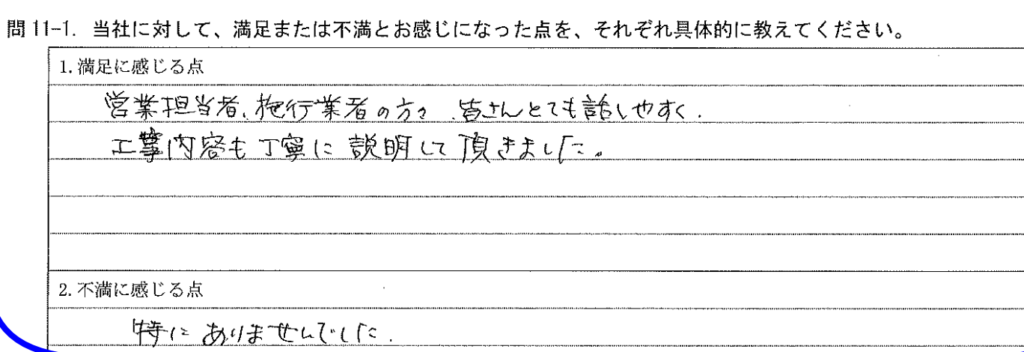 問11-1. 当社に対して、満足または不満とお感じになった点を、それぞれ具体的に教えてください。
1.満足に感じる点
営業担当者、施行業者の方々、皆さんとても話しやすく、
工事内容も丁寧に説明して頂きました。
2.不満に感じる点
特にありませんでした.